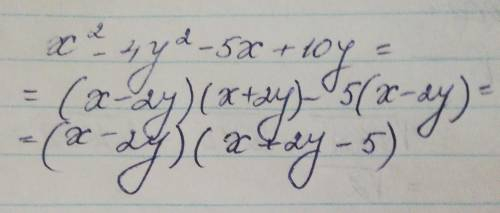 x² - 4y² - 5x + 10y =
= (x - 2y)(x + 2y) - 5(x - 2y) =
= (x - 2y)(x + 2y - 5)